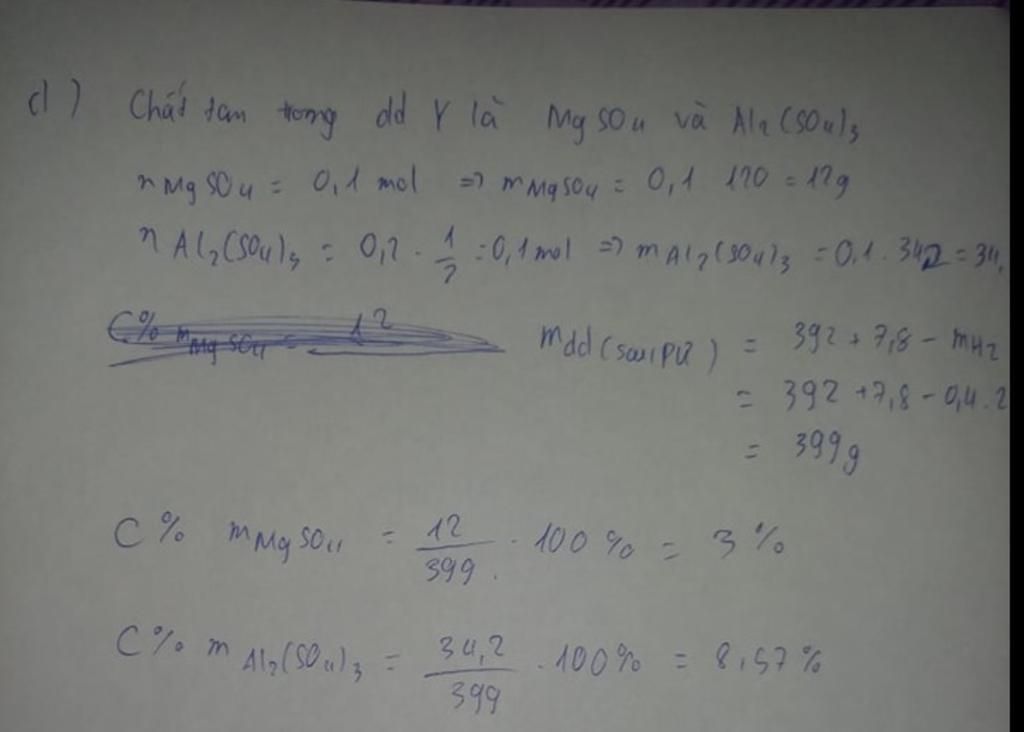 d) Chất tan trong dd Y là MgSO4 và Al2(SO4)3
nMgSO4 = 0,1 mol => mMgSO4 = 0,1 120 = 12g
nAl2(SO4)3 = 0,2 . 1/2 = 0,1 mol => mAl2(SO4)3 = 0,1 . 342 = 34,
C% mMgSO4 = 12
mdd (sau PƯ) = 392 + 7,8 - mH2
= 392 + 7,8 - 0,4 . 2
= 399g
C% mMgSO4 = 12/399 . 100% = 3%
C% mAl2(SO4)3 = 34,2/399 . 100% = 8,57%